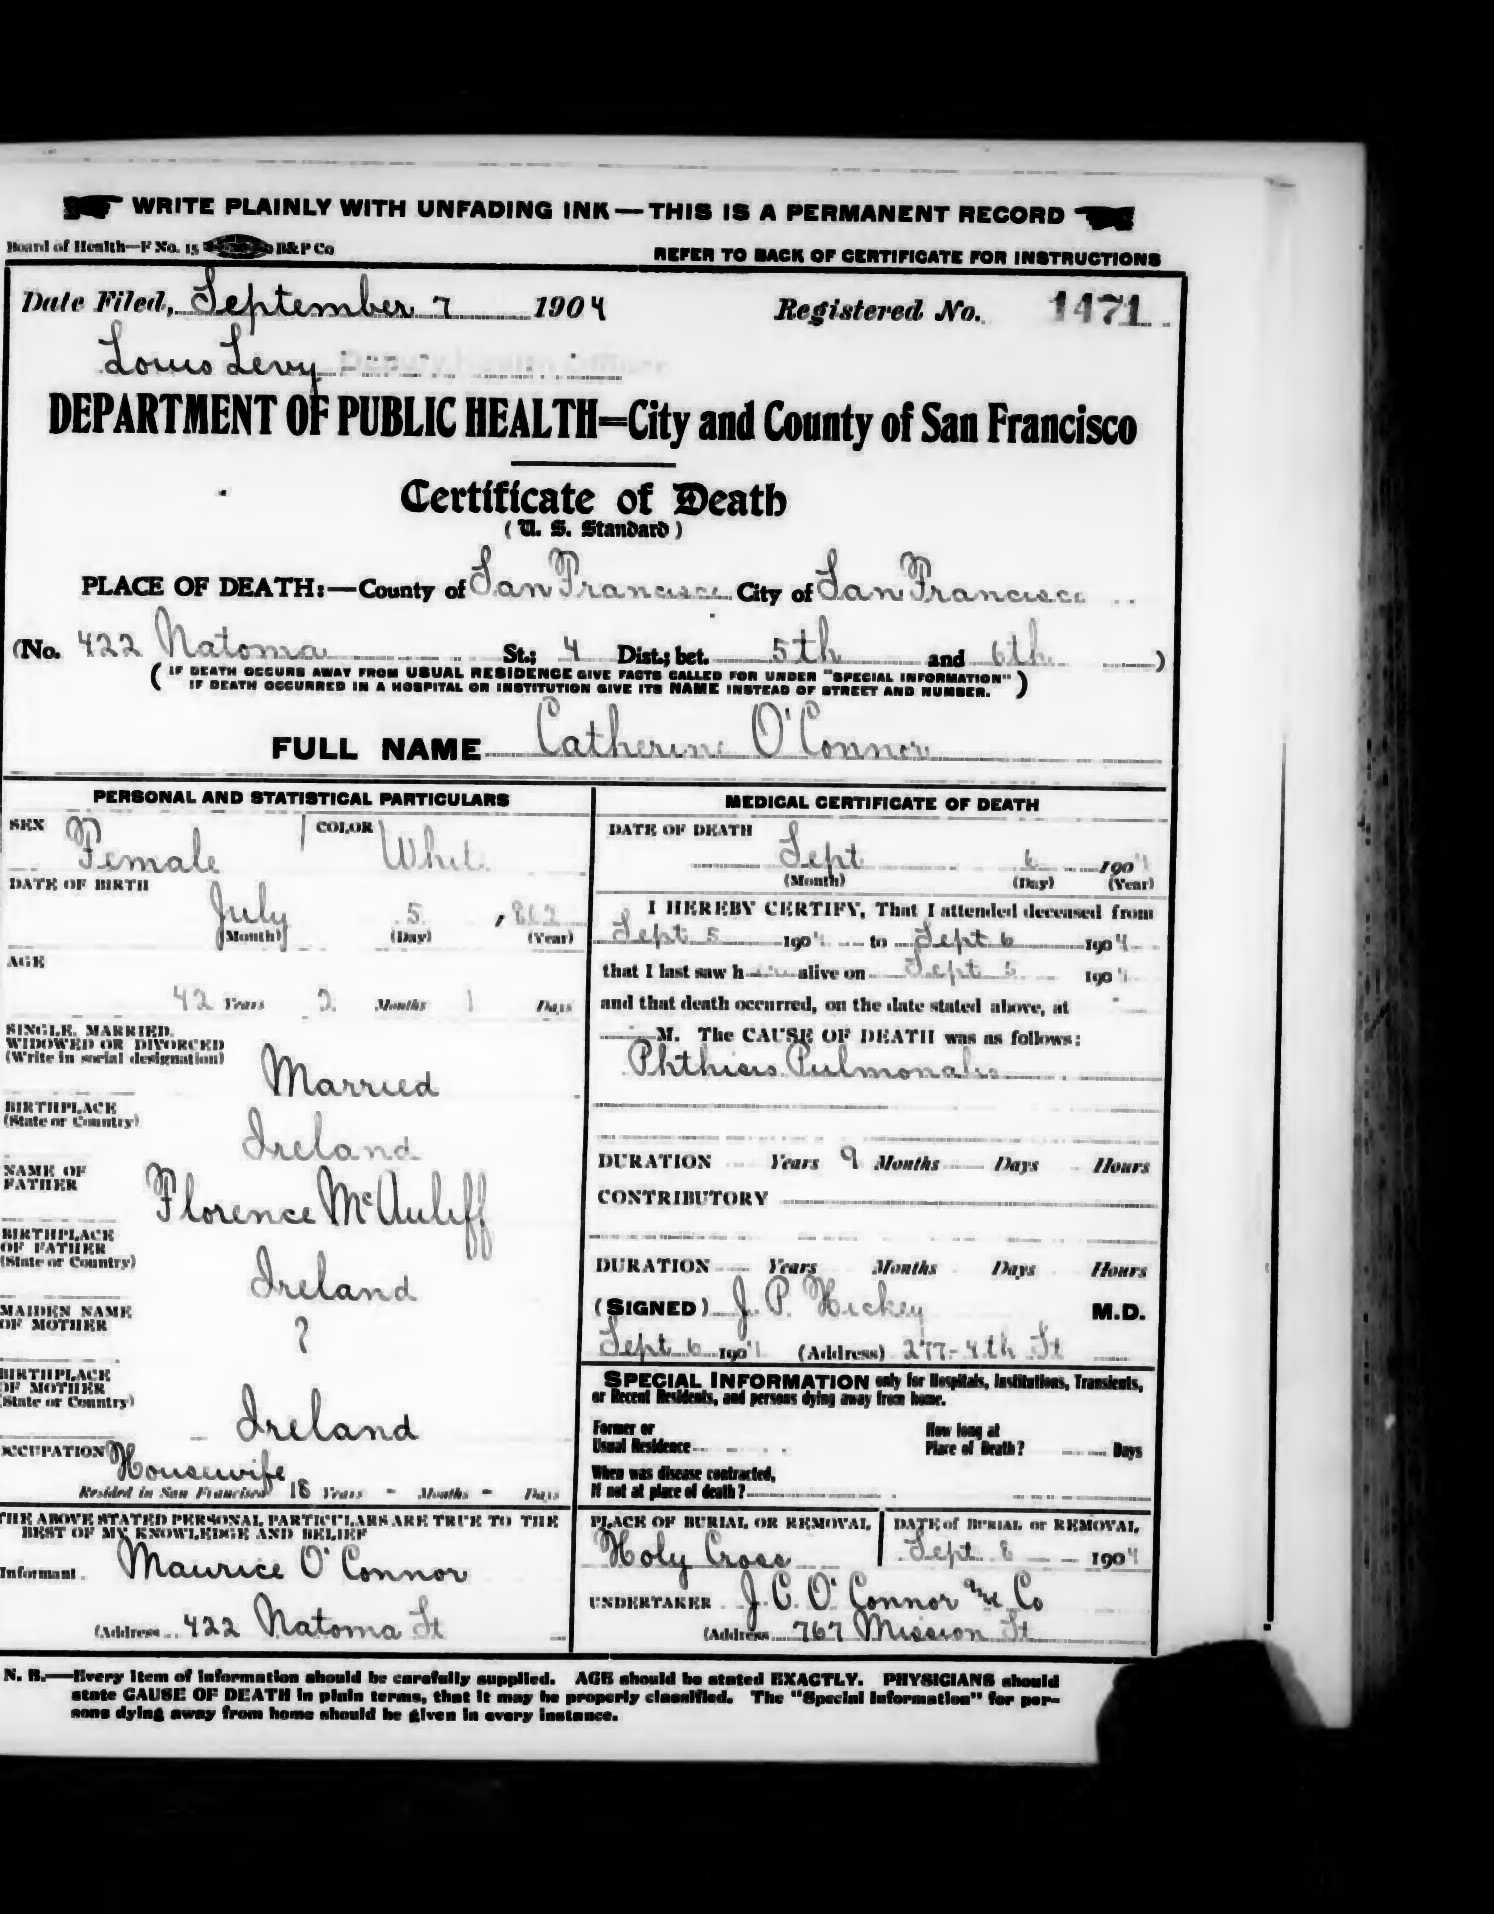 WRITE PLAINLY WITH UNFADING INK — THIS IS A PERMANENT RECORD
Board of Health—F No. 15 B&P Co
REFER TO BACK OF CERTIFICATE FOR INSTRUCTIONS
Date Filed, September 7 1904 Registered No. 1471
Louis Levy Deputy Health Officer
DEPARTMENT OF PUBLIC HEALTH=City and County of San Francisco
Certificate of Death
(U. S. Standard)
PLACE OF DEATH:—County of San Francisco City of San Francisco
(No. 422 Natoma St.; 4 Dist.; bet. 5th and 6th )
( IF DEATH OCCURS AWAY FROM USUAL RESIDENCE GIVE FACTS CALLED FOR UNDER "SPECIAL INFORMATION" )
IF DEATH OCCURRED IN A HOSPITAL OR INSTITUTION GIVE ITS NAME INSTEAD OF STREET AND NUMBER.
FULL NAME Catherine O'Connor
PERSONAL AND STATISTICAL PARTICULARS
SEX Female COLOR White
DATE OF BIRTH
July 5 , 862
(Month) (Day) (Year)
AGE
42 Years 2 Months 1 Days
SINGLE, MARRIED,
WIDOWED OR DIVORCED
(Write in social designation)
Married
BIRTHPLACE
(State or Country)
Ireland
NAME OF
FATHER
Florence McAuliff
BIRTHPLACE
OF FATHER
(State or Country)
Ireland
MAIDEN NAME
OF MOTHER
?
BIRTHPLACE
OF MOTHER
(State or Country)
Ireland
OCCUPATION Housewife
Resided in San Francisco 18 Years - Months - Days
THE ABOVE STATED PERSONAL PARTICULARS ARE TRUE TO THE
BEST OF MY KNOWLEDGE AND BELIEF
Informant Maurice O'Connor
(Address 422 Natoma St
MEDICAL CERTIFICATE OF DEATH
DATE OF DEATH
Sept 6 1904
(Month) (Day) (Year)
I HEREBY CERTIFY, That I attended deceased from
Sept 5 1904 to Sept 6 1904
that I last saw her alive on Sept 5 1904
and that death occurred, on the date stated above, at
M. The CAUSE OF DEATH was as follows:
Phthisis Pulmonalis
DURATION Years 9 Months Days Hours
CONTRIBUTORY
DURATION Years Months Days Hours
(SIGNED) J. P. Hickey M.D.
Sept 6 1904 (Address) 277-4th St
SPECIAL INFORMATION only for Hospitals, Institutions, Transients,
or Recent Residents, and persons dying away from home.
Former or
Usual Residence
How long at
Place of Death? Days
When was disease contracted,
If not at place of death?
PLACE OF BURIAL OR REMOVAL
Holy Cross
DATE of BURIAL or REMOVAL
Sept 8 1904
UNDERTAKER J. C. O'Connor and Co
(Address 767 Mission St
N. B.—Every item of information should be carefully supplied. AGE should be stated EXACTLY. PHYSICIANS should
state CAUSE OF DEATH in plain terms, that it may be properly classified. The "Special Information" for per-
sons dying away from home should be given in every instance.